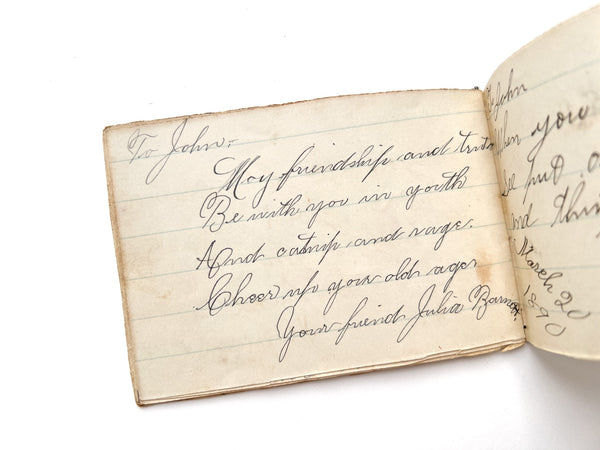 To John;
May friendship and truth
Be with you in youth
And catnip and rage
Cheer up your old age
Your friend Julia Barnes.
To John
When you
see put
and thin
March 20
1890